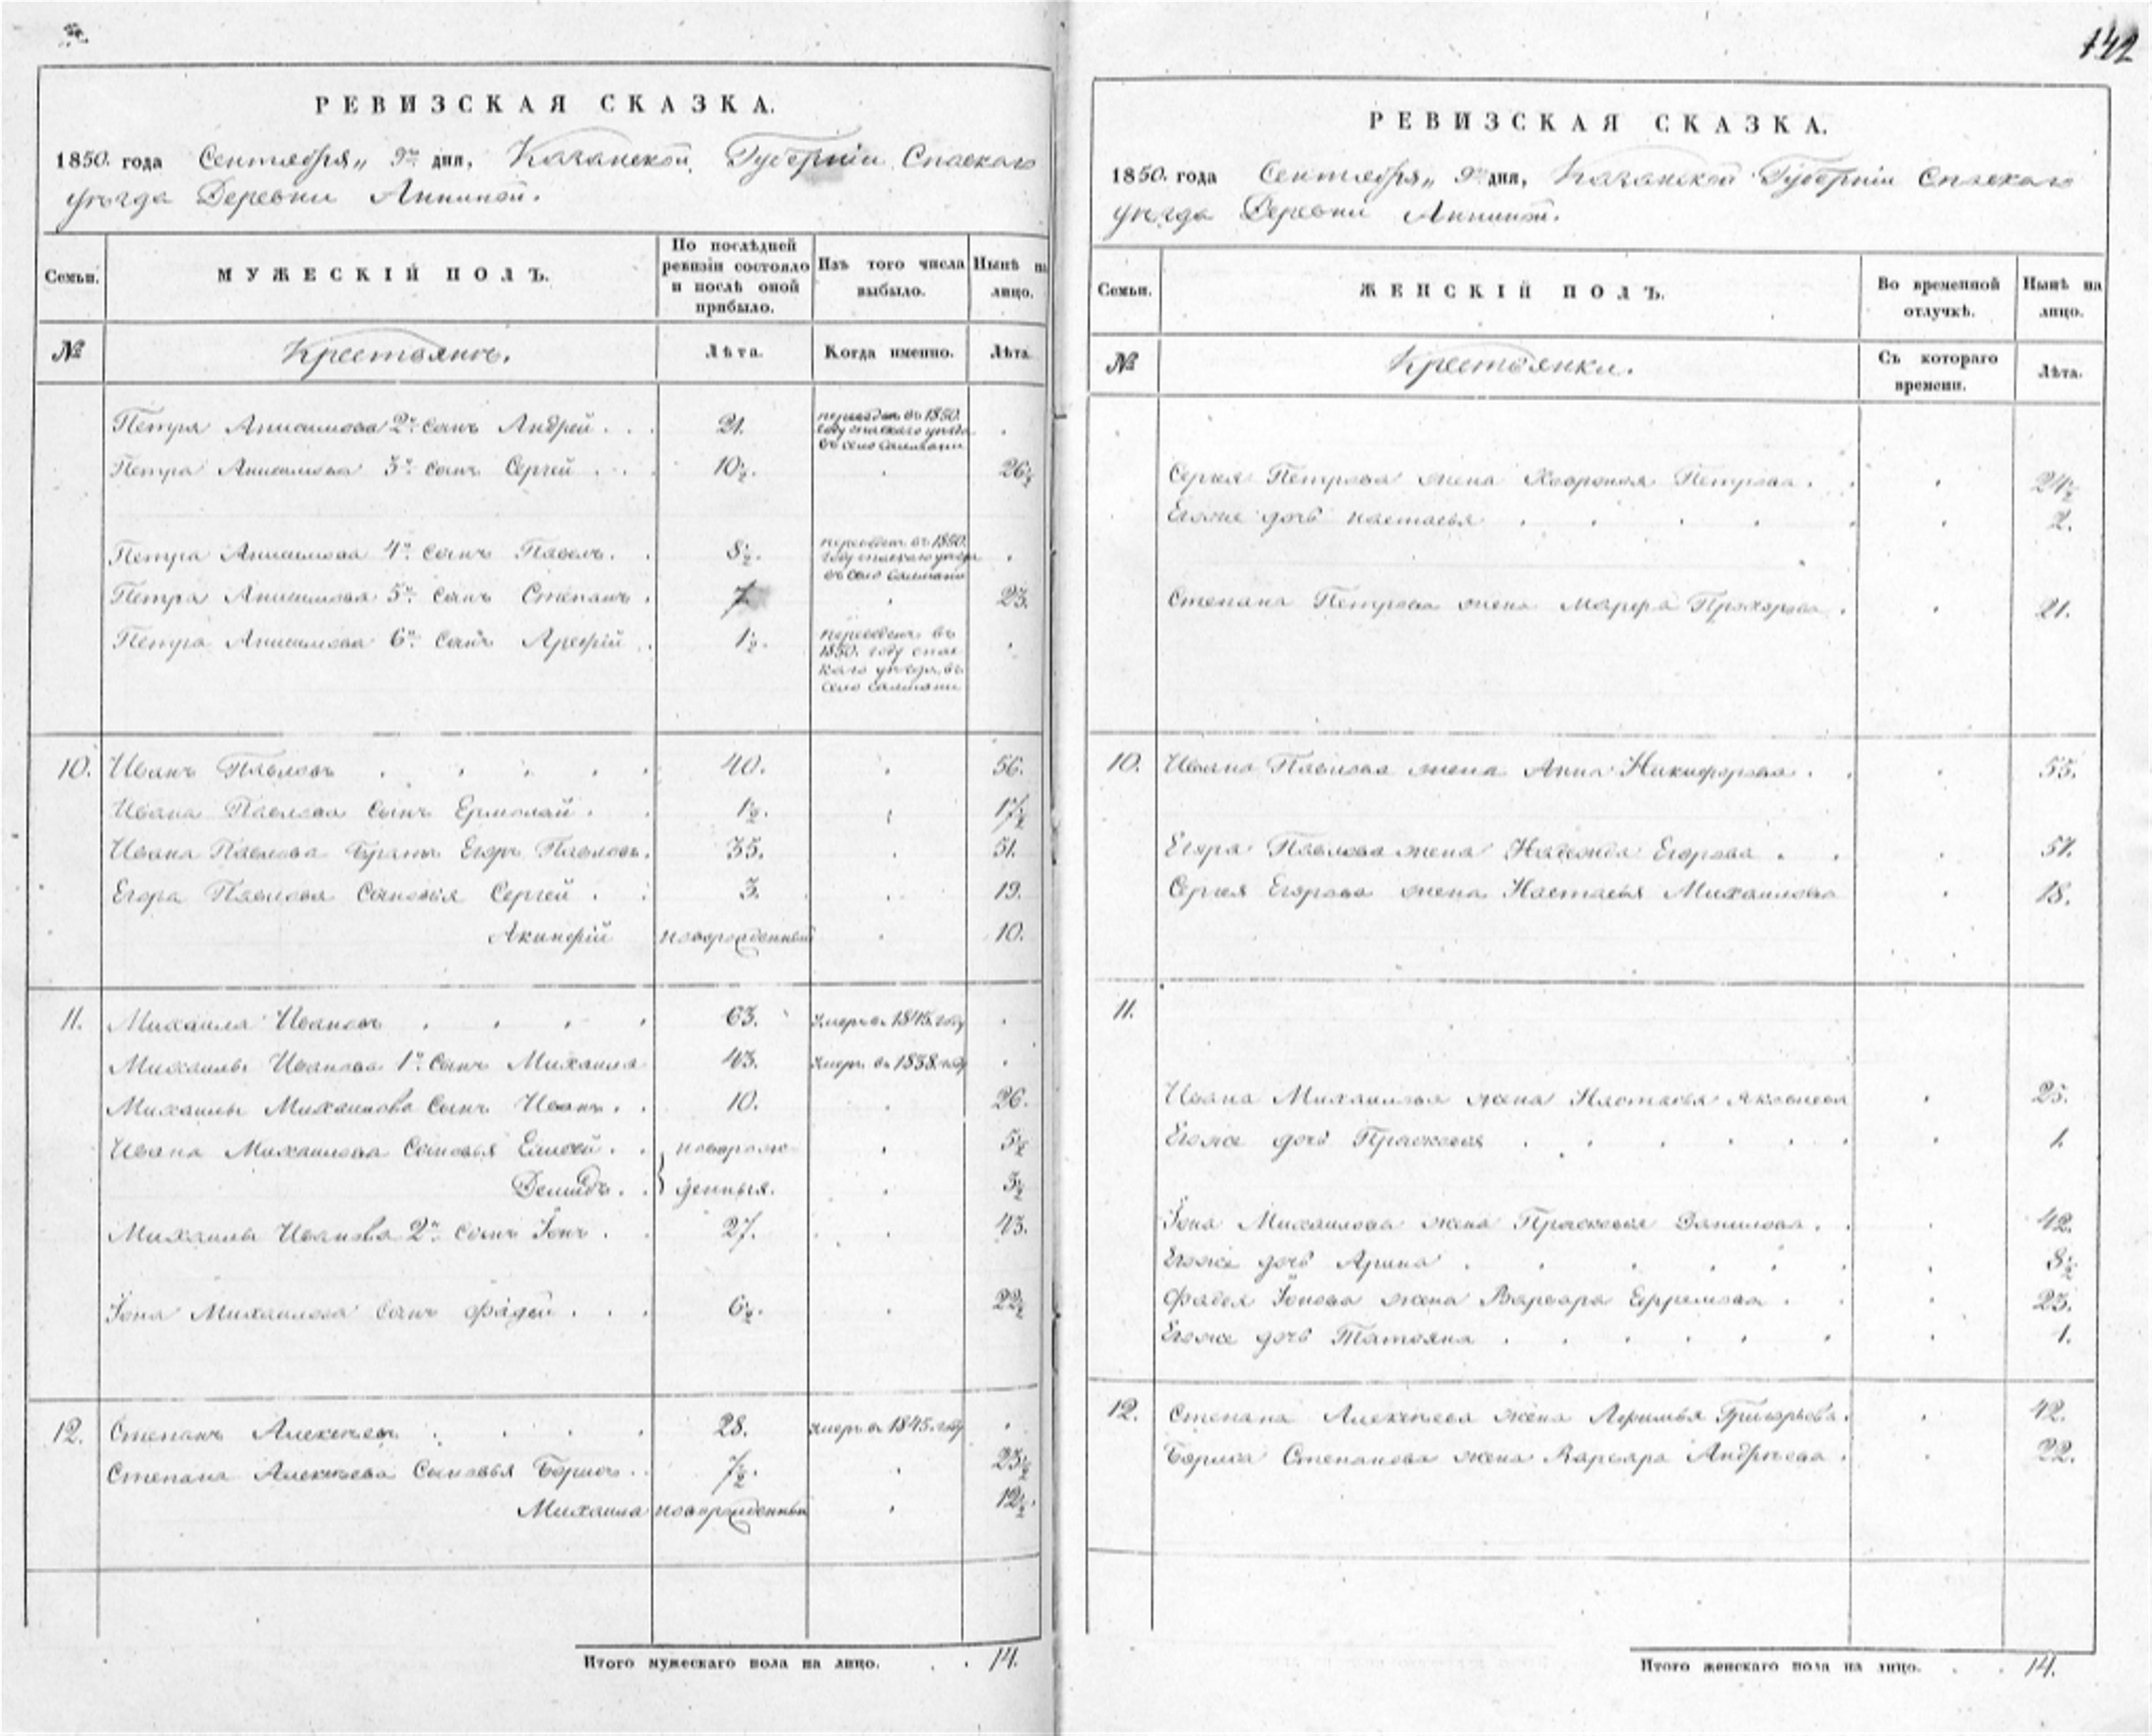 142
РЕВИЗСКАЯ СКАЗКА.
1850. года Сентября„ 9го дня, Казанской Губерніи Спаскаго
уѣзда Деревни Аниной.
Семьи. МУЖЕСКІЙ ПОЛЪ. По послѣдней ревизіи состояло и послѣ оной прибыло. Изъ того числа выбыло. Нынѣ на лицо.
№ Крестьянъ. Лѣта. Когда именно. Лѣта.
Петра Анисимова 2й сынъ Андрей . . . 21. переведен въ 1850. году спаскаго уѣзда въ село Салманы
Петра Анисимова 3й сынъ Сергѣй . . . 10½. 26½
Петра Анисимова 4й сынъ Павелъ. . 8½. переведен въ 1850. году спаскаго уѣзда въ село Салманы
Петра Анисимова 5й сынъ Степанъ . 7 23.
Петра Анисимова 6й сынъ Арефій . 1½. переведенъ въ 1850. году спаскаго уѣзда, въ село Салманы
10. Иванъ Павловъ . . . . . 40. 56.
Ивана Павлова сынъ Ермолай . . 1½. 17½
Ивана Павлова братъ Егоръ Павловъ. 35. 51.
Егора Павлова сыновья Сергѣй . . 3. 19.
Акинфій новорожденный 10.
11. Михаила Ивановъ . . . . 63. умеръ въ 1845. году
Михаилы Иванова 1й сынъ Михаила 43. умеръ въ 1838. году
Михаилы Михаилова сынъ Иванъ . . 10. 26.
Ивана Михаилова сыновья Елисей . . новорож- 5½
Демидъ . . денныя. 3½
Михаилы Иванова 2й сынъ Іонъ . . 27. 43.
Іона Михаилова сынъ Фадей . . . 6½. 22½
12. Степанъ Алексѣевъ . . . . 28. умеръ въ 1845. году
Степана Алексѣева сыновья Борисъ . . 7½. 23½
Михаила новорожденный 12½.
Итого мужескаго пола на лицо. . . 14.
РЕВИЗСКАЯ СКАЗКА.
1850. года Сентября„ 9го дня, Казанской Губерніи Спаскаго
уѣзда Деревни Аниной.
Семьи. ЖЕНСКІЙ ПОЛЪ. Во временной отлучкѣ. Нынѣ на лицо.
№ Крестьянки. Съ котораго времени. Лѣта.
Сергѣя Петрова жена Хавронья Петрова . . 24½
Егоже дочь Настасья . . . . . 2.
Степана Петрова жена Марфа Прохорова . 21.
10. Ивана Павлова жена Анна Никифорова . . 55.
Егора Павлова жена Надежда Егорова . . 57.
Сергѣя Егорова жена Настасья Михаилова 18.
11.
Ивана Михаилова жена Настасья Яковлева 25.
Егоже дочь Прасковья . . . . . 1.
Іона Михаилова жена Прасковья Данилова . . 42.
Егоже дочь Арина . . . . . . 8½
Фадея Іонова жена Варвара Ефремова . . 23.
Егоже дочь Татьяна . . . . . 1.
12. Степана Алексѣева жена Афимья Григорьева . 42.
Бориса Степанова жена Варвара Андрѣева . 22.
Итого женскаго пола на лицо. . . 14.